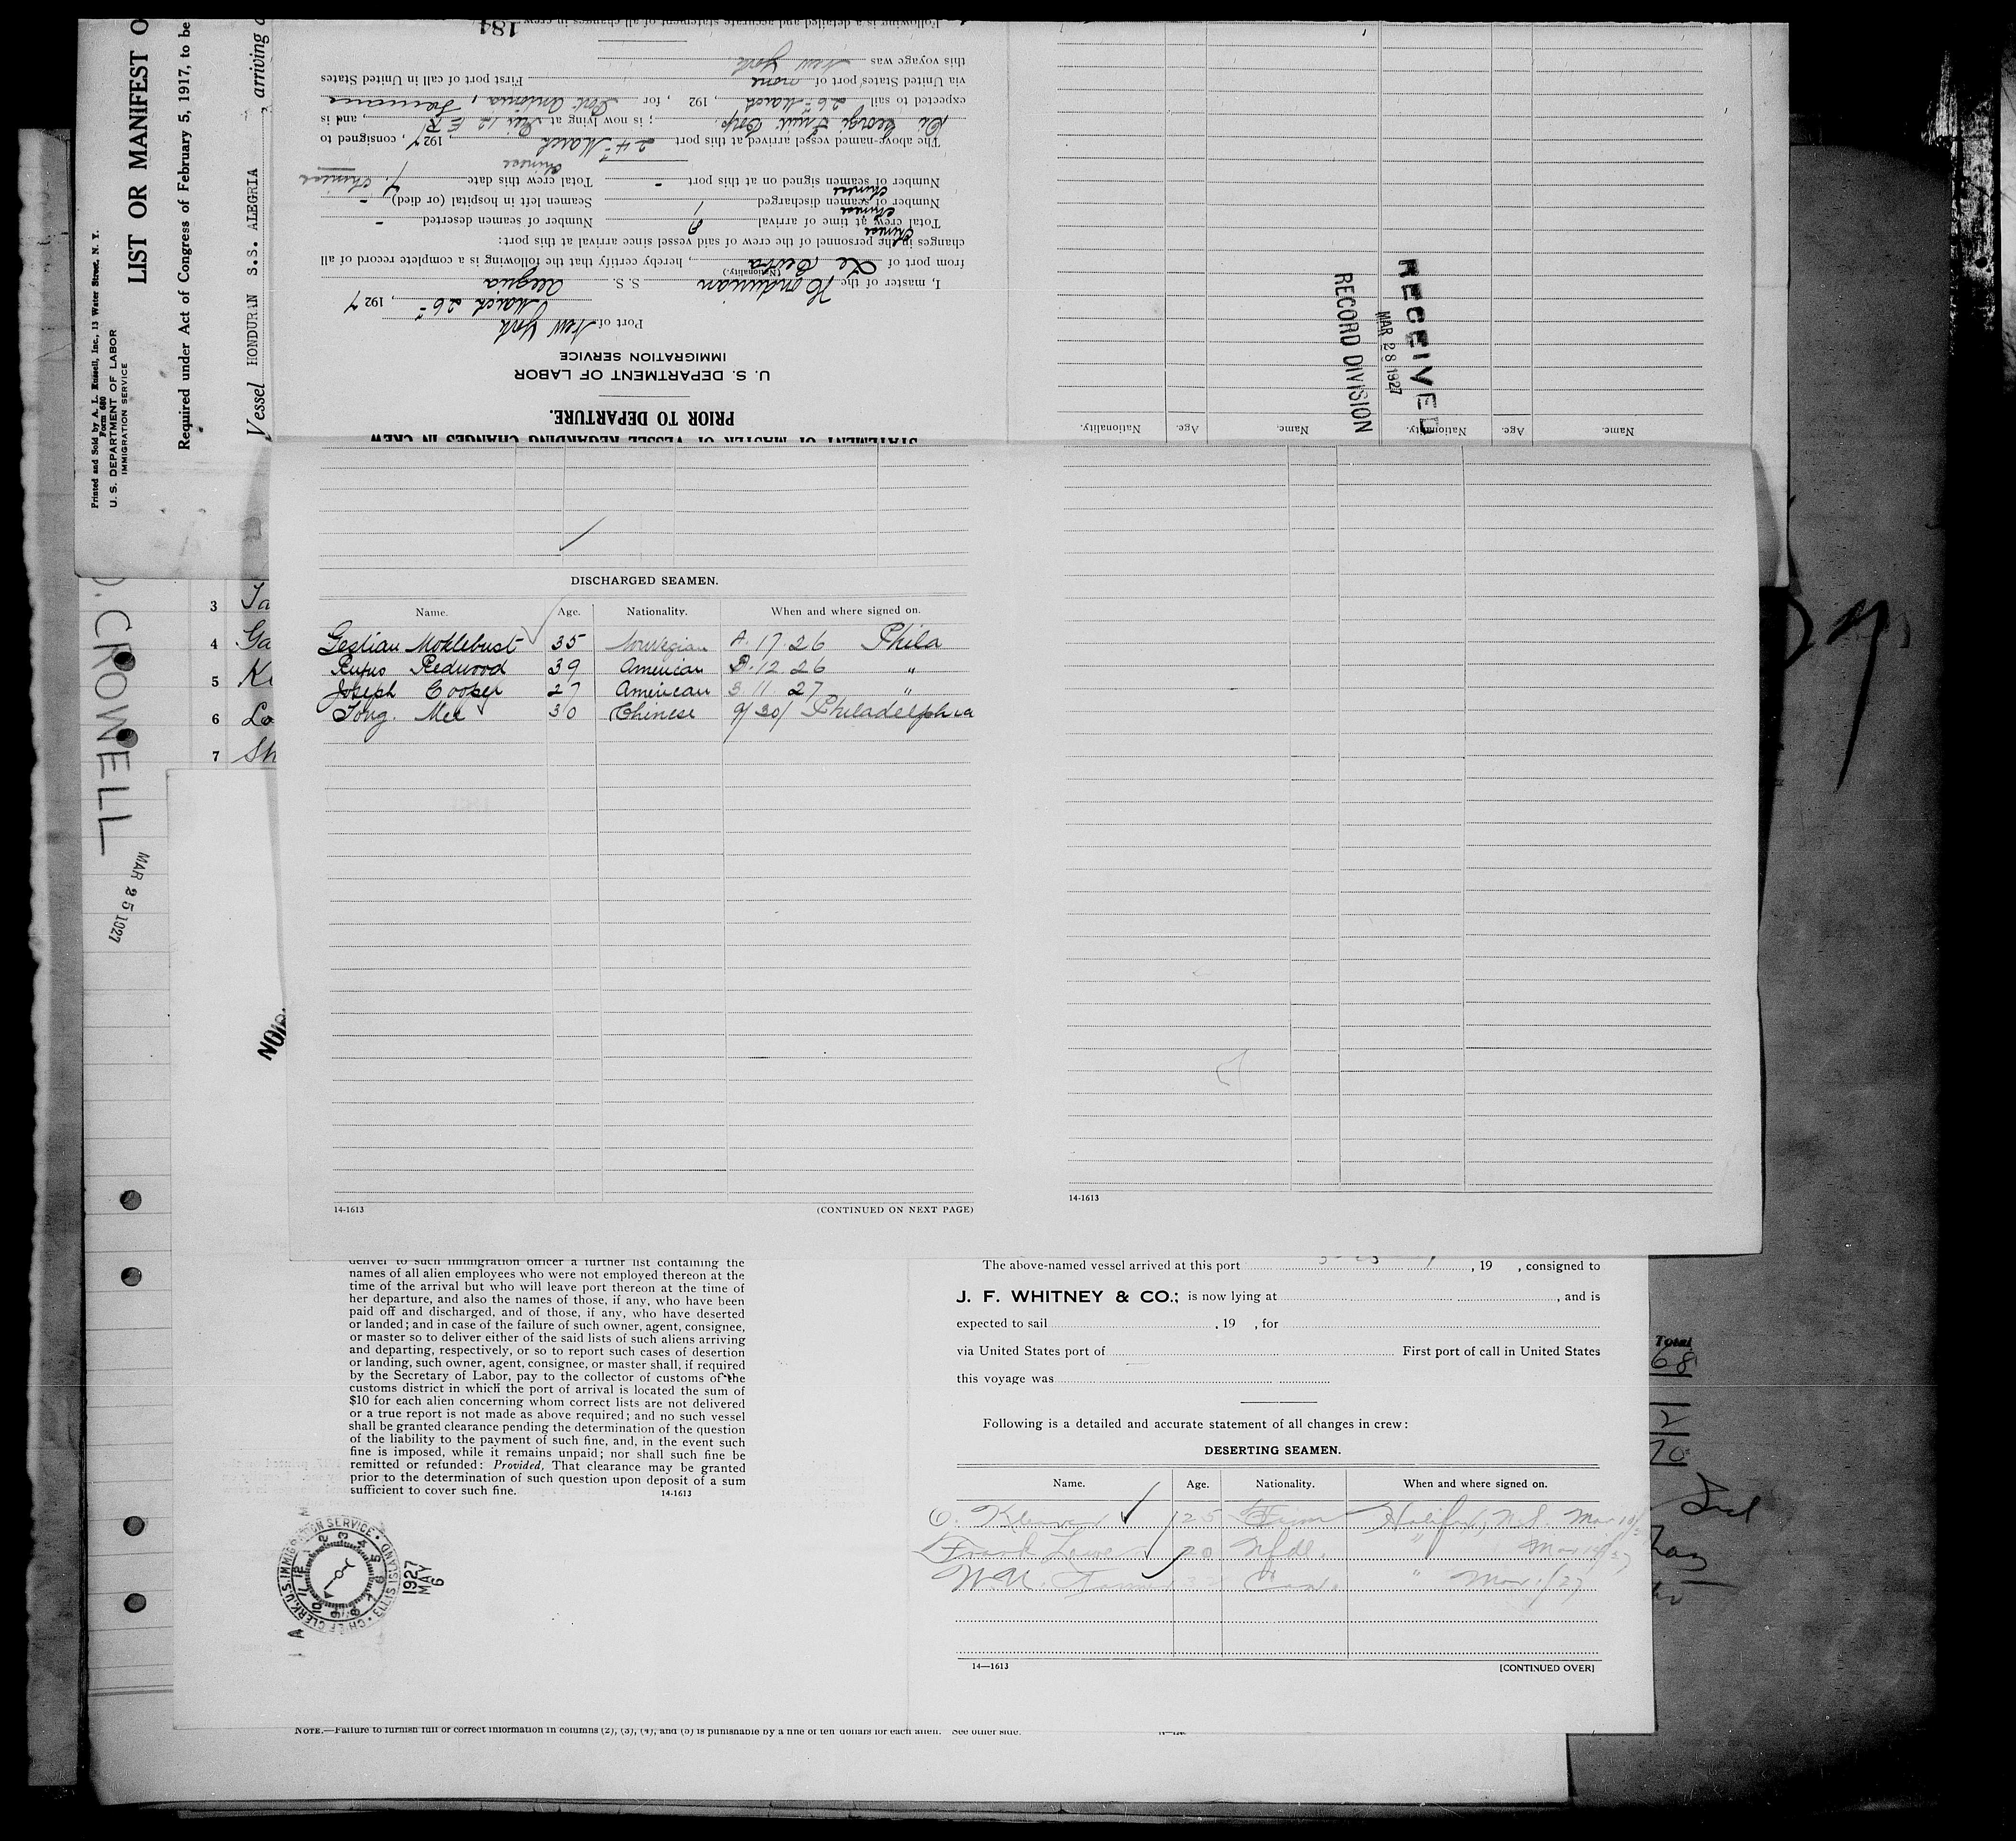 LIST OR MANIFEST O
Required under Act of Congress of February 5, 1917, to be
Vessel HONDURAN S.S. ALEGRIA, arriving
Printed and Sold by A. L. Russell, Inc., 13 Water Street, N. Y.
Form 680
U. S. DEPARTMENT OF LABOR
IMMIGRATION SERVICE
STATEMENT OF MASTER OF VESSEL REGARDING CHANGES IN CREW
PRIOR TO DEPARTURE.
U. S. DEPARTMENT OF LABOR
IMMIGRATION SERVICE
Port of New York
March 26, 1927
I, master of the Honduran S. S. Alegria
(Nationality.)
from port of La Ceiba, hereby certify that the following is a complete record of all
changes in the personnel of the crew of said vessel since arrival at this port:
Chinese
Total crew at time of arrival 8 Number of seamen deserted -
Chinese
Number of seamen discharged 1 Seamen left in hospital (or died) -
Chinese
Number of seamen signed on at this port - Total crew this date 7. Chinese
Chinese
The above-named vessel arrived at this port 24 March, 1927, consigned to
Di Giorgi Fruit Corp. ; is now lying at Pier 12 E R, and is
expected to sail 26 March, 192 , for Port Antonio, Jamaica
via United States port of none First port of call in United States
this voyage was New York
Following is a detailed and accurate statement of all changes in crew
184
Name. Age. Nationality. Name. Age. Nationality.
RECEIVED
MAR 28 1927
RECORD DIVISION
DISCHARGED SEAMEN.
Name. Age. Nationality. When and where signed on.
Gestian Moklebust 35 Norwegian A. 17. 26 Phila
Rufus Redwood 39 American D. 12 26 "
Joseph Cooper 27 American 3. 11. 27 "
Tong. Mee 30 Chinese 9/30/ Philadelphia
14-1613 (CONTINUED ON NEXT PAGE)
14-1613
3
4 Ga
5
6 Lo
7 Sh
CROWELL
MAR 25 1927
deliver to such immigration officer a further list containing the
names of all alien employees who were not employed thereon at the
time of the arrival but who will leave port thereon at the time of
her departure, and also the names of those, if any, who have been
paid off and discharged, and of those, if any, who have deserted
or landed; and in case of the failure of such owner, agent, consignee,
or master so to deliver either of the said lists of such aliens arriving
and departing, respectively, or so to report such cases of desertion
or landing, such owner, agent, consignee, or master shall, if required
by the Secretary of Labor, pay to the collector of customs of the
customs district in which the port of arrival is located the sum of
$10 for each alien concerning whom correct lists are not delivered
or a true report is not made as above required; and no such vessel
shall be granted clearance pending the determination of the question
of the liability to the payment of such fine, and, in the event such
fine is imposed, while it remains unpaid; nor shall such fine be
remitted or refunded: Provided, That clearance may be granted
prior to the determination of such question upon deposit of a sum
sufficient to cover such fine.
14-1613
CHIEF CLERK, U.S. IMMIGRATION SERVICE • ELLIS ISLAND
1927
MAY
6
The above-named vessel arrived at this port , 19 , consigned to
J. F. WHITNEY & CO.; is now lying at , and is
expected to sail , 19 , for
via United States port of First port of call in United States
this voyage was
Following is a detailed and accurate statement of all changes in crew:
DESERTING SEAMEN.
Name. Age. Nationality. When and where signed on.
25 Halifax, N.S. Mar
Frank 20 Nfdl. " Mar
" Mar. /27
14—1613 [CONTINUED OVER]
NOTE.—Failure to furnish full or correct information in columns (2), (3), (4), and (5) is punishable by a fine of ten dollars for each alien. See other side.
Total
68
70